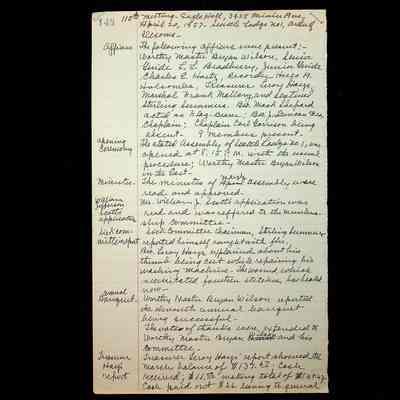 110th meeting. Eagle Hall,
April 20, 1957. Seattle Lodge No 1,
Officers
The following officers were present:-
Worthy Master Bryan Wilson, Senior
Guide L. L. Bradbury, Junior Guide
Charles E. Hartz, Recorder Hugo A.
Holcomba, Treasurer Leroy Hays,
Marshal Frank Mallory, and Sentinel
Sterling Summers. Bro. Mack Shepard
acted as Flag-Bearer; Bro. J. Duncan
Chaplain; Chaplain Carl Garrison being
absent. 9 members present.
opening
Ceremony
The stated Assembly of Seattle Lodge No. 1, was
opened at 8.15 P.M. with the usual
procedure; Worthy Master Bryan Wilson
in the East.
Minutes.
The minutes of March Assembly were
read and approved.
William
Jefferson
Scott's
application
Mr. William J. Scott's application was
read and was reffered to the member-
ship committee.
Sick com-
mittee report
Sick Committee Chairman, Sterling Summers
reported himself range with flu,
Bro. Leroy Hays explained about his
thumb being cut while repairing his
washing machine. The wound which
necessitated fourteen stitches, has healed
now.
annual
Banquet.
Worthy Master Bryan Wilson reported
the eleventh annual banquet
being successful.
The votes of thanks were extended to
Worthy Master Bryan Wilson and his
committee.
Treasurer
Hays
report
Treasurer Leroy Hays' report showed the
March balance of $137. Cash
received, $11. making total of
Cash paid out $22 leaving to general